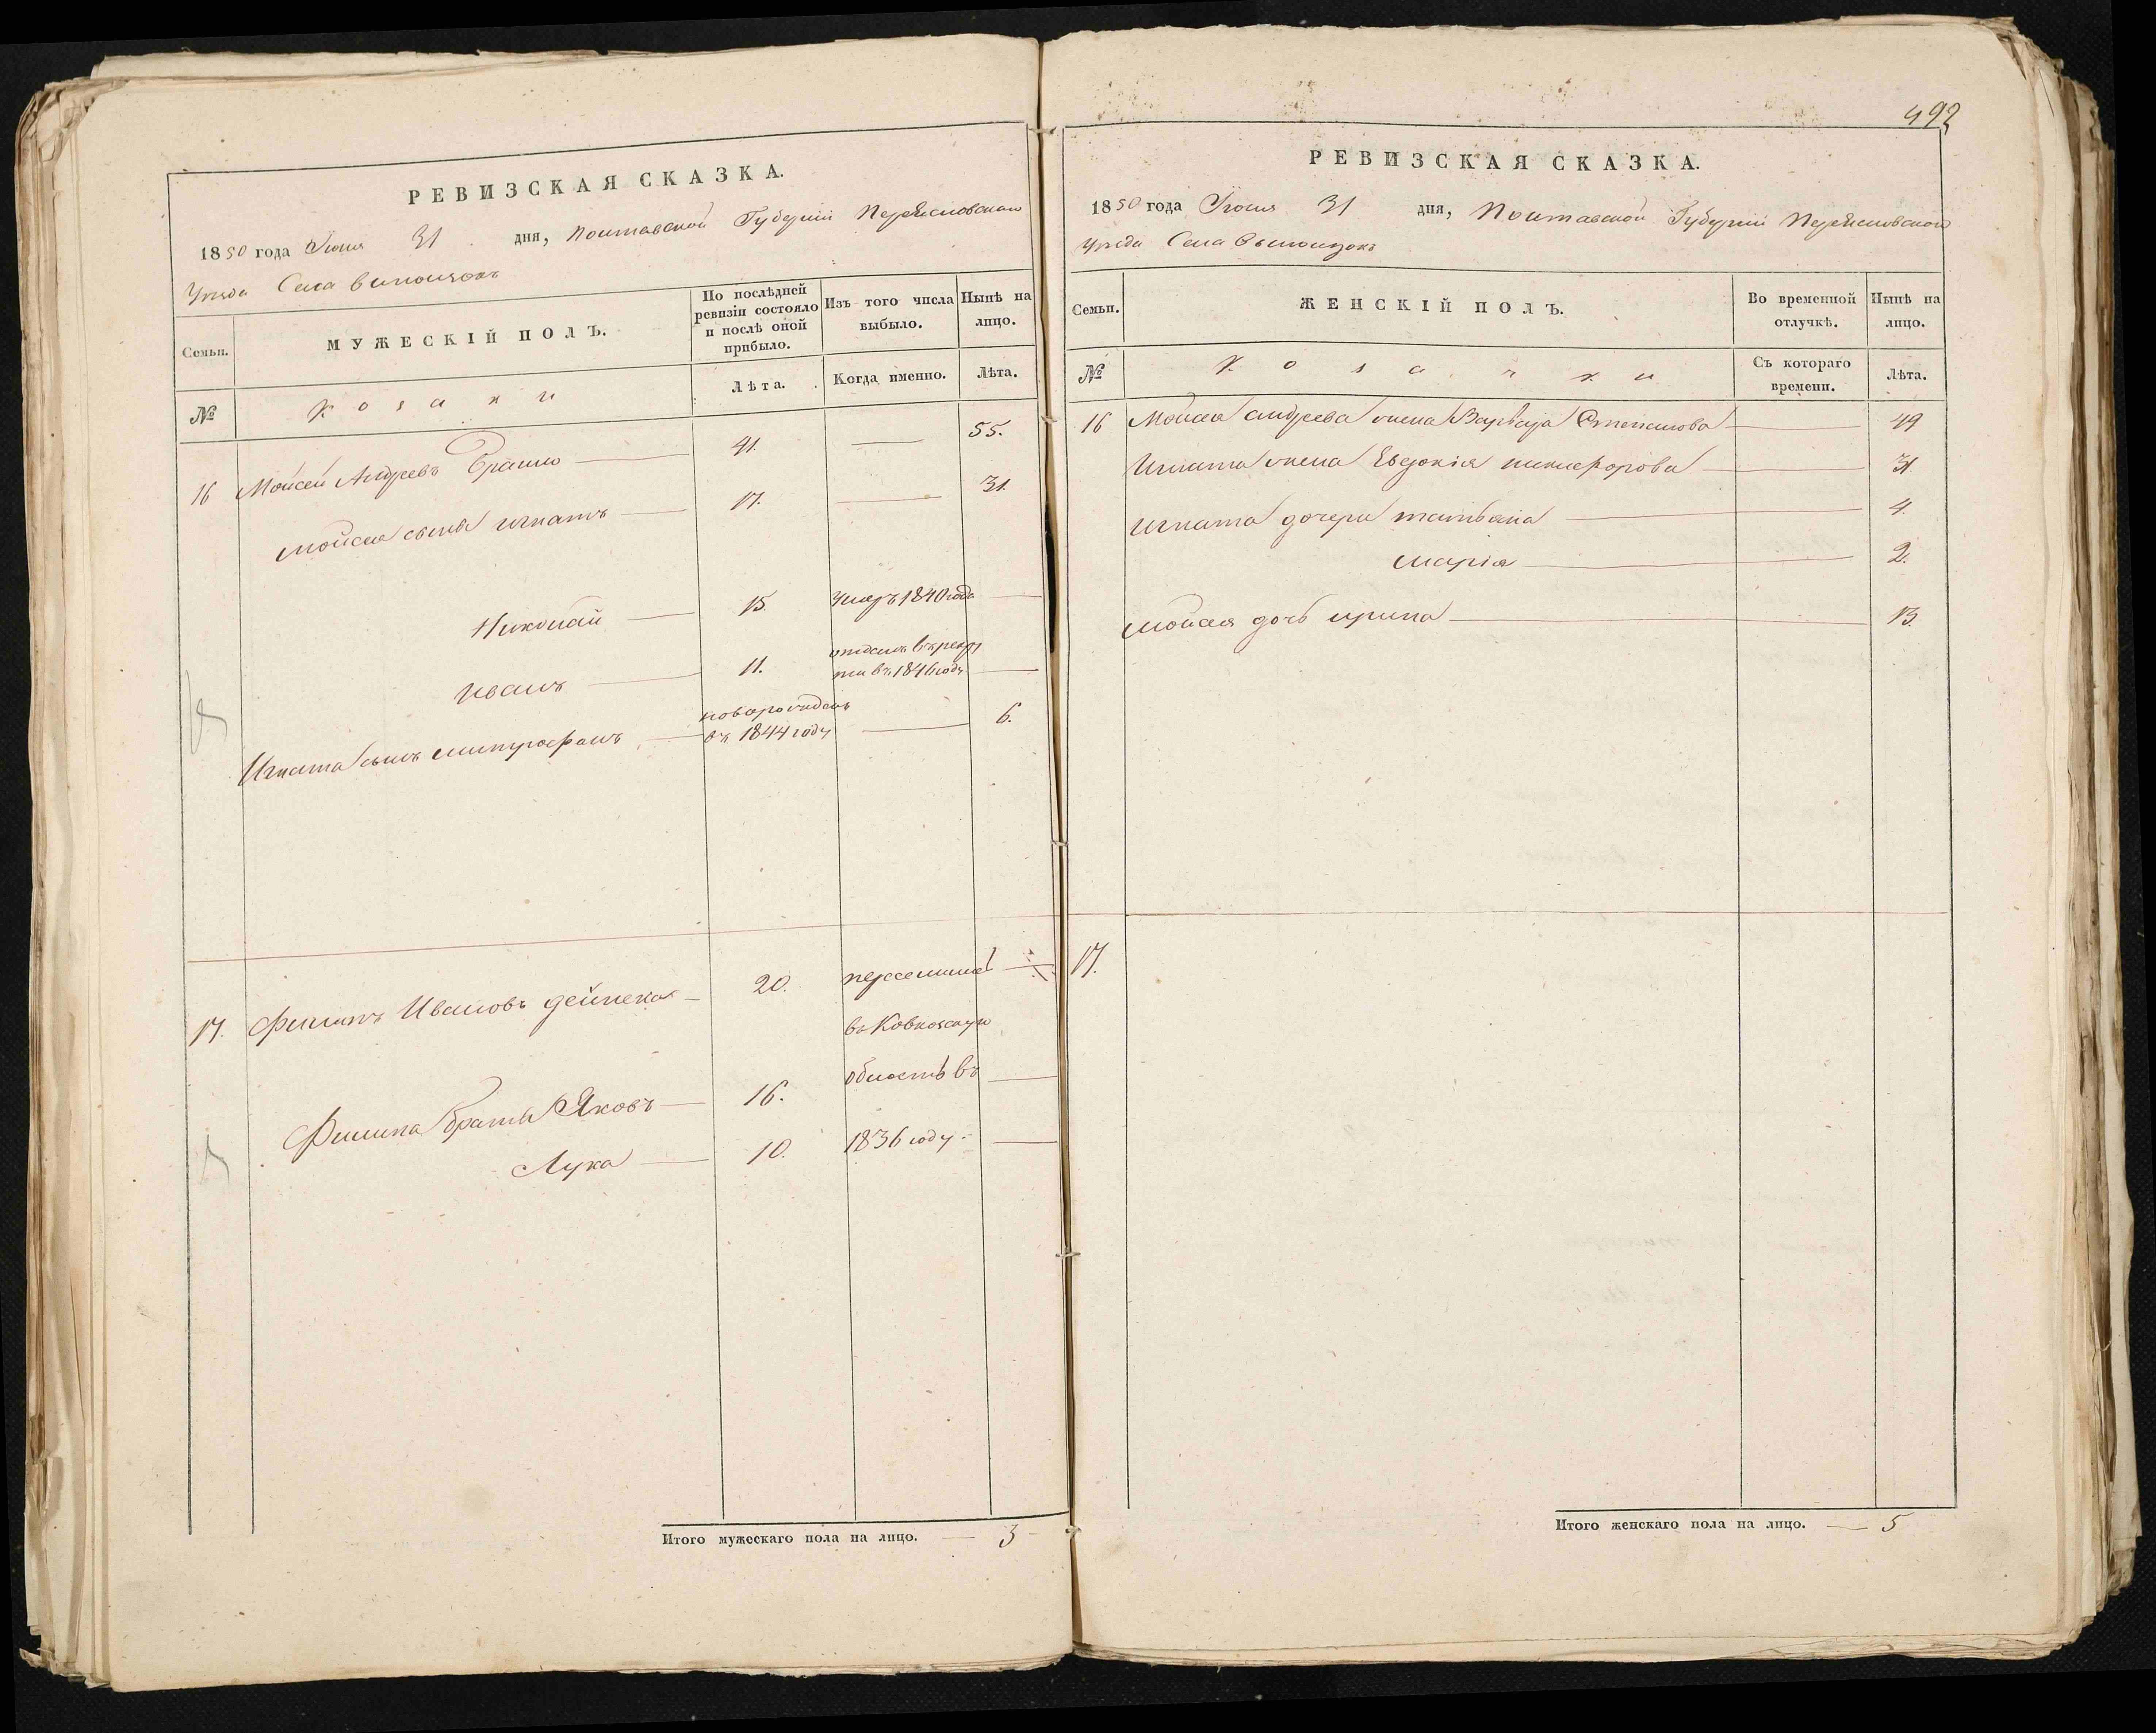 РЕВИЗСКАЯ СКАЗКА.
1850 года Іюля 31 дня, Полтавской Губерніи Переяславскаго
Уезда Села Виползокъ
Семьи. МУЖЕСКІЙ ПОЛЪ. По послѣдней ревизіи состояло и послѣ оной прибыло. Изъ того числа выбыло. Нынѣ на лицо.
№ Козаки Лѣта. Когда именно. Лѣта.
16 Мойсей Андреевъ 41. — 55.
Мойсея сыны Игнатъ — 17. — 31.
Николай — 15. Умеръ 1840 года —
Иванъ — 11. отданъ въ рекру
ти въ 1846 году —
Игната сынъ Митрофанъ — новорожденъ
въ 1844 году — 6.
17. Филипъ Ивановъ Дейнека — 20. переселились —
въ Кавказскую
Филипа братья Яковъ — 16. область въ —
Лука — 10. 1836 году —
Итого мужескаго пола на лицо. — 3 —
492
РЕВИЗСКАЯ СКАЗКА.
1850 года Іюля 31 дня, Полтавской Губерніи Переяславского
Уезда Села Виползокъ
Семьи. ЖЕНСКІЙ ПОЛЪ. Во временной отлучкѣ. Нынѣ на лицо.
№ Козачки Съ котораго времени. Лѣта.
16 Мойсея Андреева жена Варвара Степанова — 49
Игната жена Евдокія Никифорова — 31
Игната дочери Татьяна — 4.
Марія — 2.
Мойсея дочь Ирина — 13.
17.
Итого женскаго пола на лицо. — 5